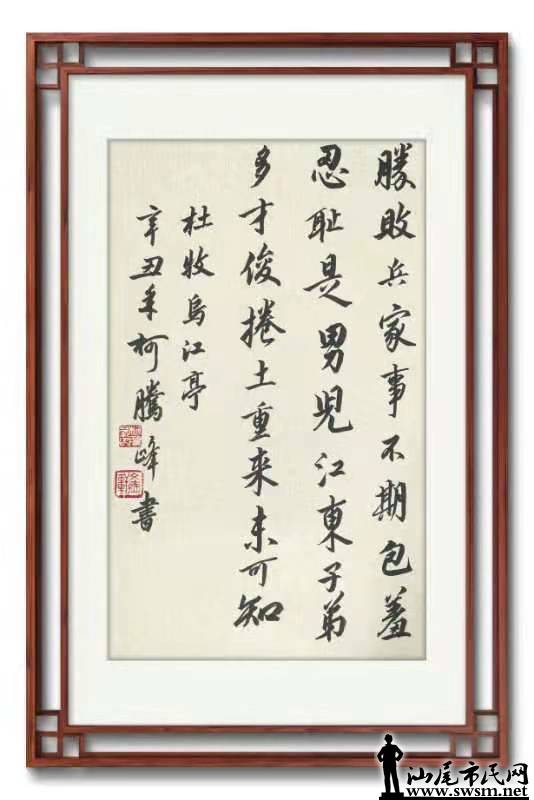 勝敗兵家事不期包羞
忍耻是男兒江東子弟
多才俊捲土重来未可知
杜牧烏江亭
辛丑年柯騰峰書
汕尾市民网
www.swsm.net